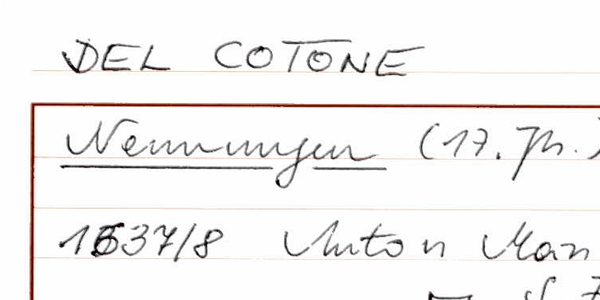 DEL COTONE
Nennungen (17. Jh.)
1637/8 Anton Man